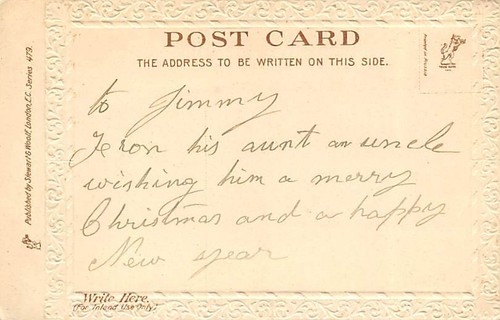 POST CARD
THE ADDRESS TO BE WRITTEN ON THIS SIDE.
to Jimmy
From his aunt an uncle
wishing him a merry
Christmas and a happy
New year
Write Here.
(For Inland Use Only)
Published by Stewart & Woolf, London, E.C. Series 479.